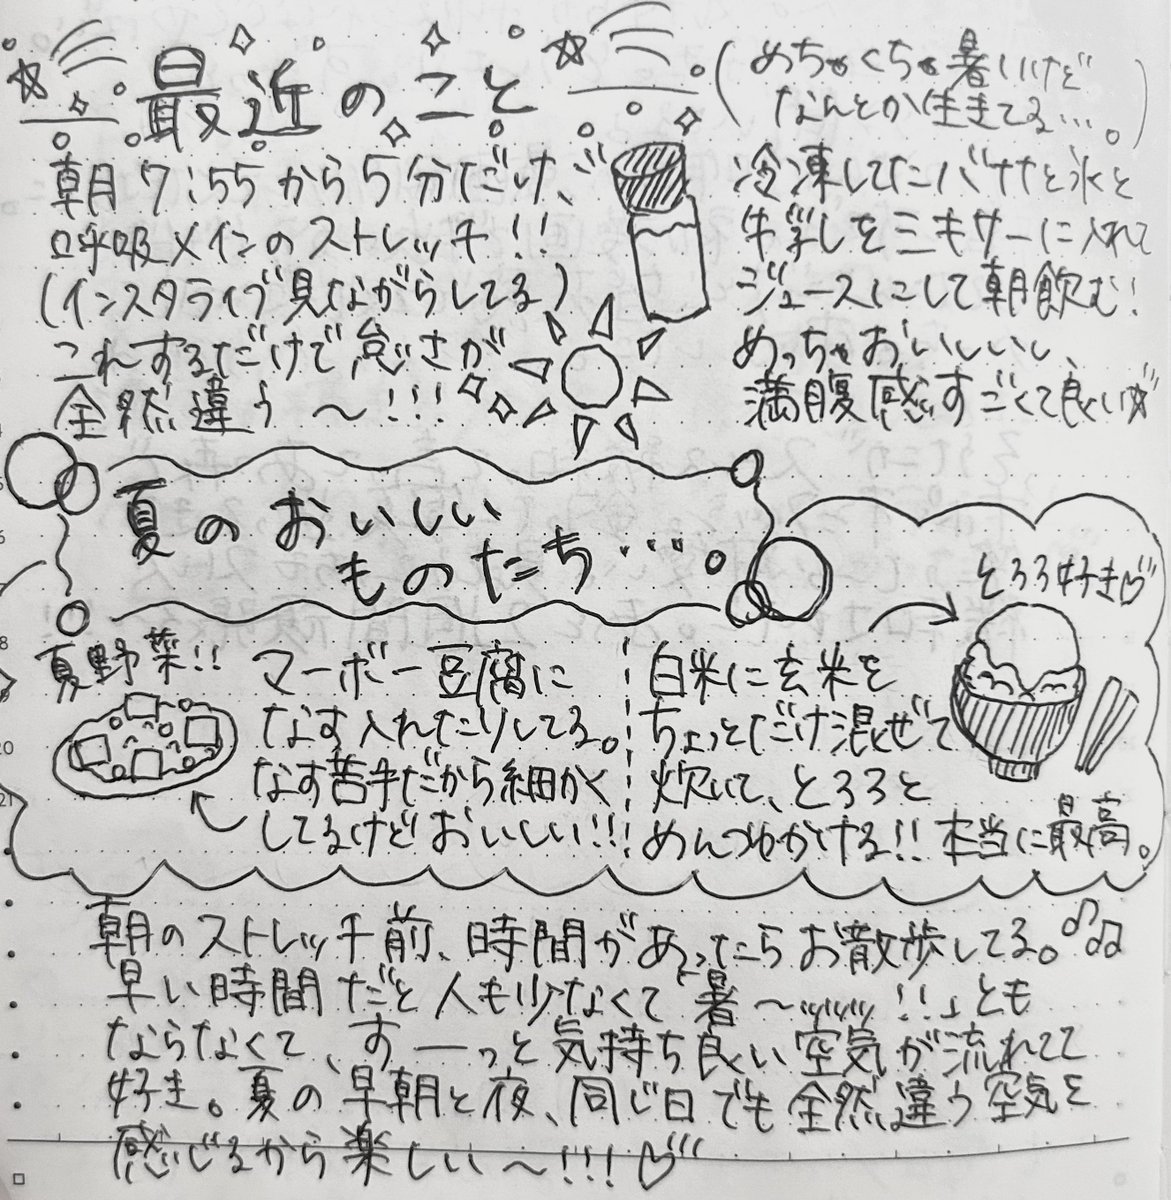 最近のこと
(めちゃくちゃ暑いけど
なんとか生きてる…。)
朝7:55から5分だけ、
呼吸メインのストレッチ!!
(インスタライブ見ながらしてる)
これするだけで怠さが
全然違う〜!!!
冷凍したバナナと氷と
牛乳しをミキサーに入れて
ジュースにして朝飲む!
めっちゃおいしいし、
満腹感すごくて良い☆
夏のおいしい
ものたち…。
夏野菜!!
マーボー豆腐に
なす入れたりしてる。
なす苦手だから細かく
してるけどおいしい!!!
とろろ好き♡
白米に玄米を
ちょっとだけ混ぜて
炊いて、とろろと
めんつゆかける!!本当に最高。
朝のストレッチ前、時間があったらお散歩してる。♪♫
早い時間だと人も少なくて「暑〜ぃぃぃ!!」とも
ならなくて、すーっと気持ち良い空気が流れてて
好き。夏の早朝と夜、同じ日でも全然違う空気を
感じるから楽しい〜!!!♡